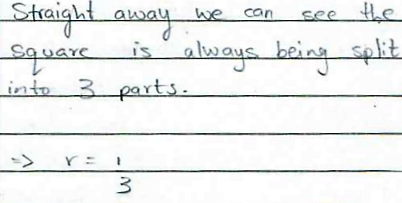 Straight away we can see the
square is always being split
into 3 parts.
=> r = 1/3